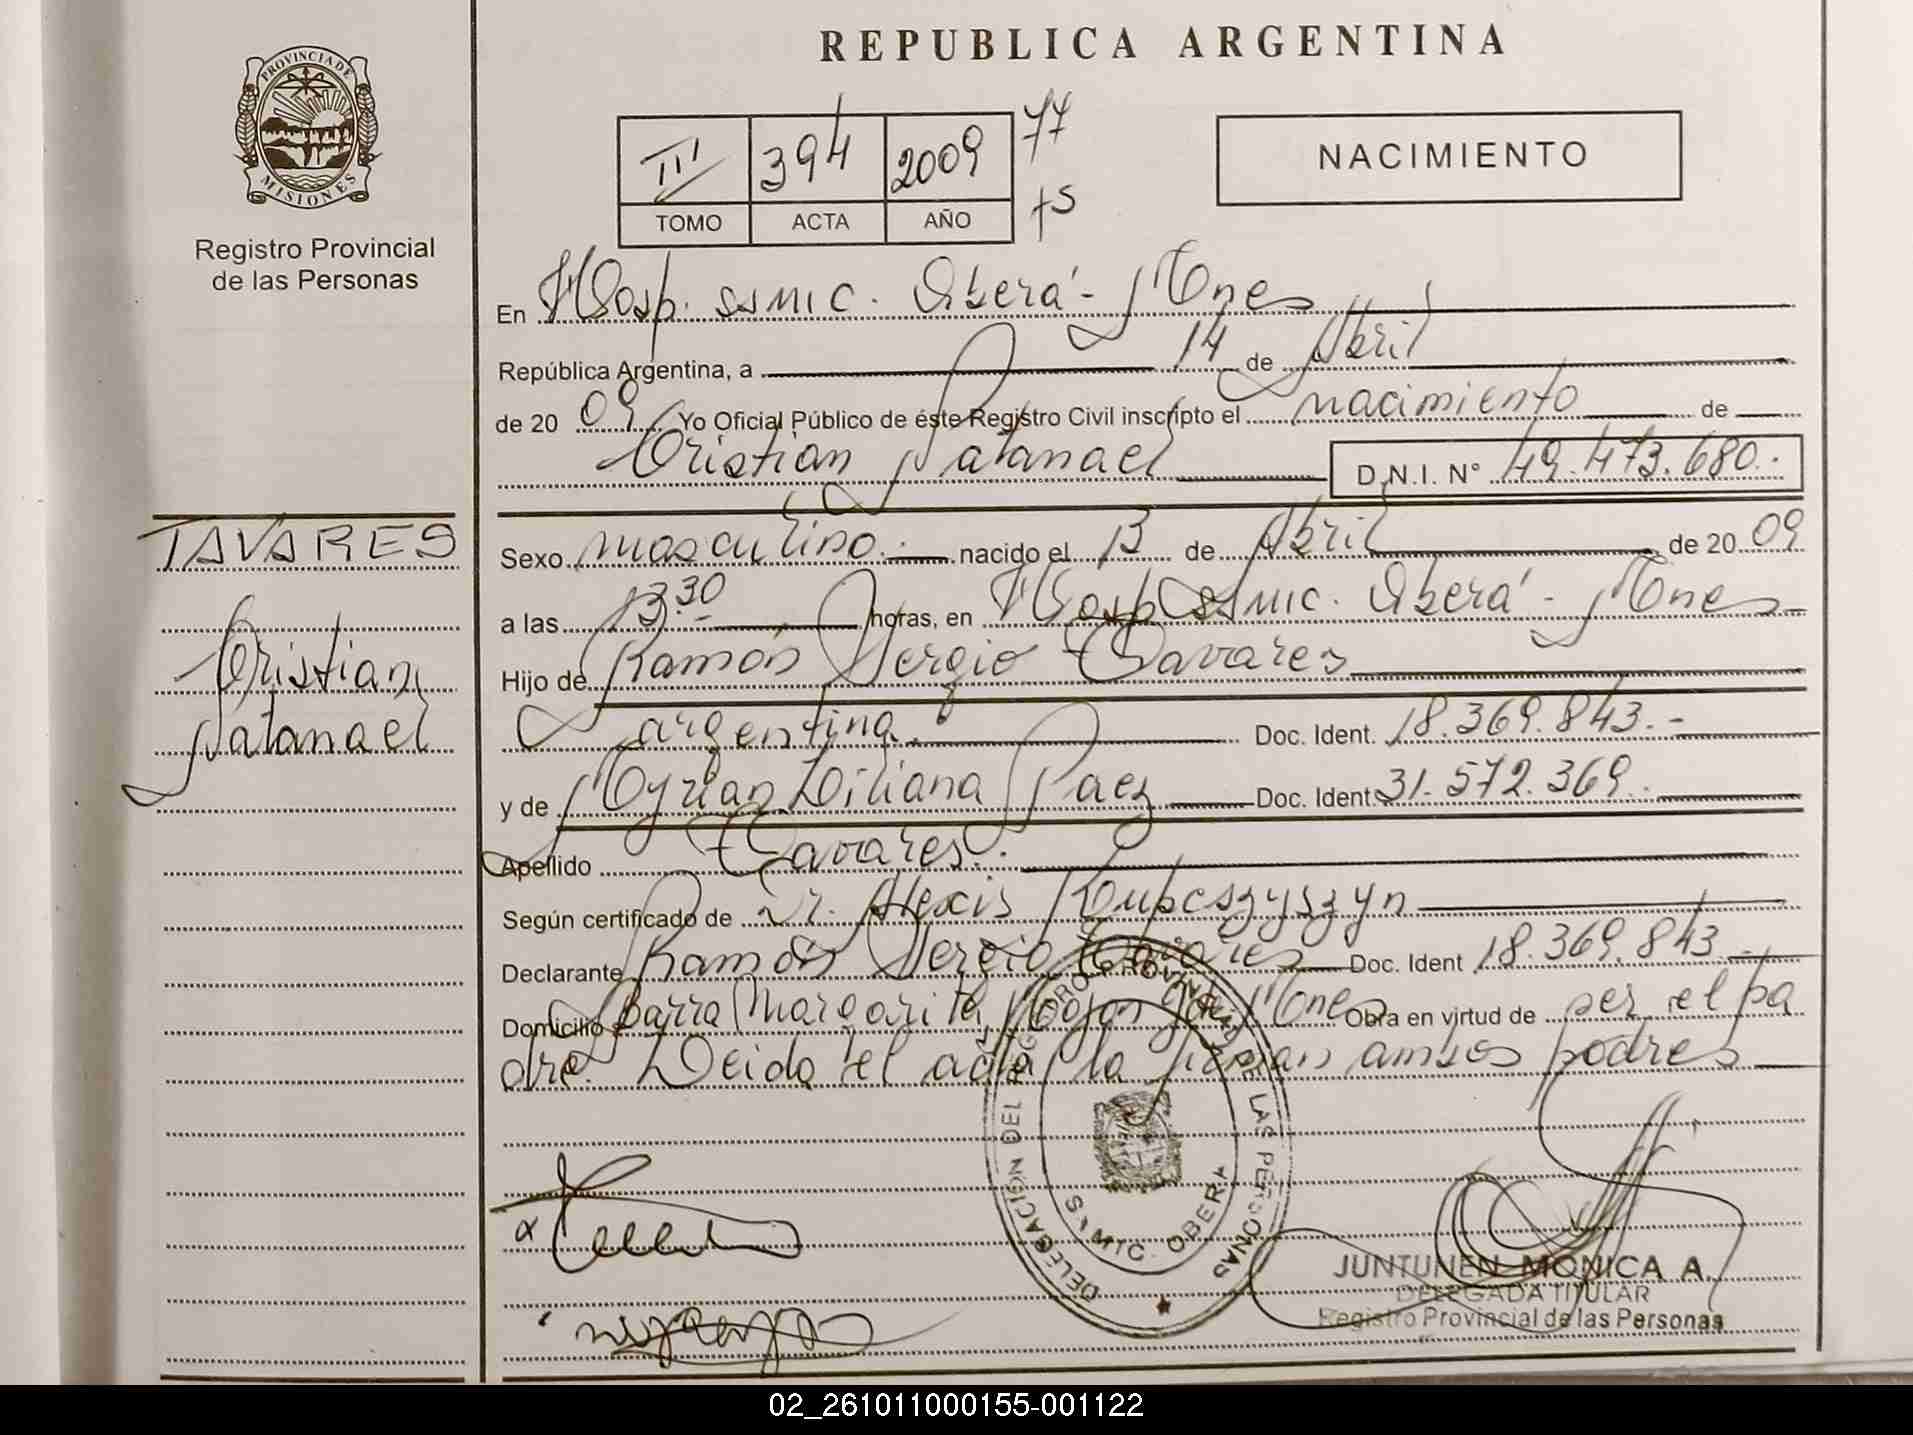 REPUBLICA ARGENTINA
PROVINCIA DE
MISIONES
Registro Provincial
de las Personas
III 394 2009 77
TOMO ACTA AÑO fs
NACIMIENTO
En Hosp. SSMIC. Oberá - Mnes
República Argentina, a 14 de Abril
de 20 09 Yo Oficial Público de éste Registro Civil inscripto el nacimiento de
Cristian Natanael D.N.I. N° 49.473.680.-
TAVARES
Cristian
Natanael
Sexo masculino.- nacido el 13 de Abril de 20 09
a las 13.30 horas, en Hosp. SSMIC. Oberá - Mnes
Hijo de Ramón Sergio Tavares
argentina. Doc. Ident. 18.369.843.-
y de Myrian Liliana Paez Doc. Ident. 31.572.369.
Apellido Tavares.-
Según certificado de Dr. Alexis Kupcszyszyn
Declarante Ramón Sergio Tavares Doc. Ident 18.369.843.-
Domicilio Barra Margarita, Mojon Mnes Obra en virtud de ser el pa
dre. Leida el acta la firman ambos padres
DELEGACIÓN DEL REGISTRO PROVINCIAL DE LAS PERSONAS
OBERA
JUNTUNEN MONICA A.
DELEGADA TITULAR
Registro Provincial de las Personas
02_261011000155-001122